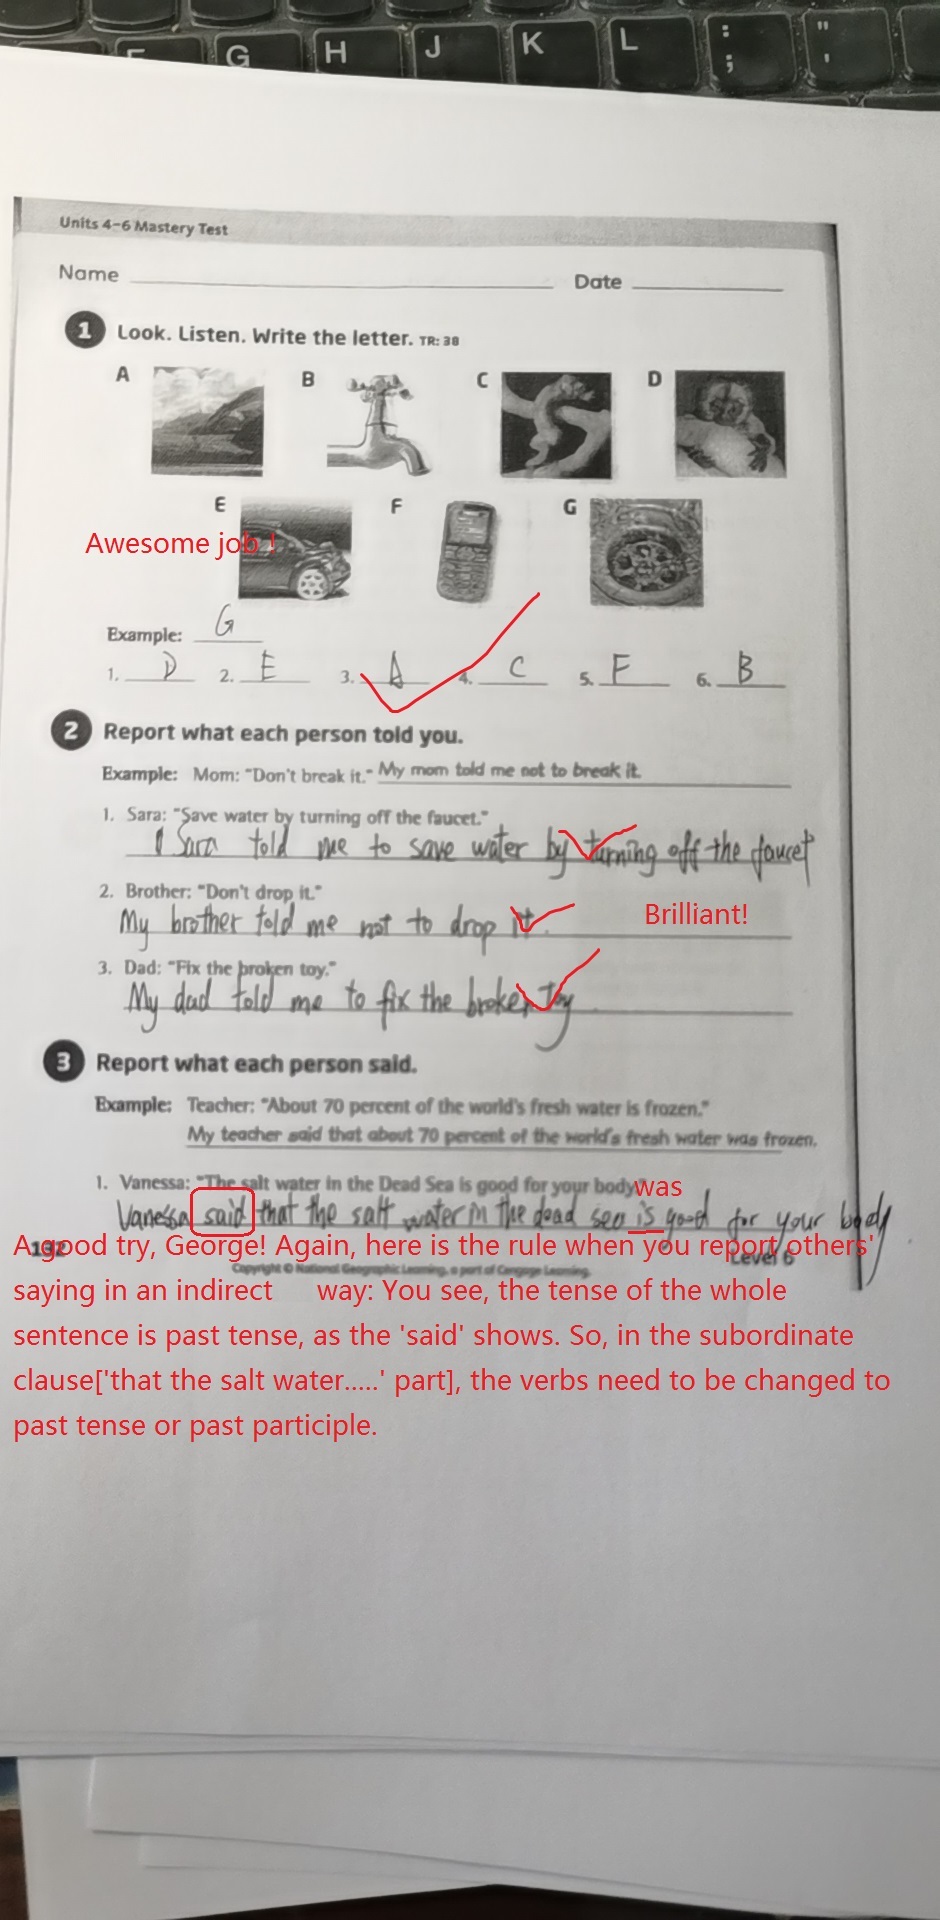 F G H J K L : ; " '
Units 4-6 Mastery Test
Name Date
1 Look. Listen. Write the letter. TR: 38
A B C D
E F G
Awesome job !
Example: G
1. D 2. E 3. A 4. C 5. F 6. B
2 Report what each person told you.
Example: Mom: "Don't break it." My mom told me not to break it.
1. Sara: "Save water by turning off the faucet."
Sara told me to save water by turning off the faucet
2. Brother: "Don't drop it."
My brother told me not to drop it.
Brilliant!
3. Dad: "Fix the broken toy."
My dad told me to fix the broken toy
3 Report what each person said.
Example: Teacher: "About 70 percent of the world's fresh water is frozen."
My teacher said that about 70 percent of the world's fresh water was frozen.
1. Vanessa: "The salt water in the Dead Sea is good for your body."
was
Vanessa said that the salt water in the dead sea is good for your body
A good try, George! Again, here is the rule when you report others'
192 Level 6
Copyright © National Geographic Learning, a part of Cengage Learning.
saying in an indirect way: You see, the tense of the whole
sentence is past tense, as the 'said' shows. So, in the subordinate
clause['that the salt water.....' part], the verbs need to be changed to
past tense or past participle.